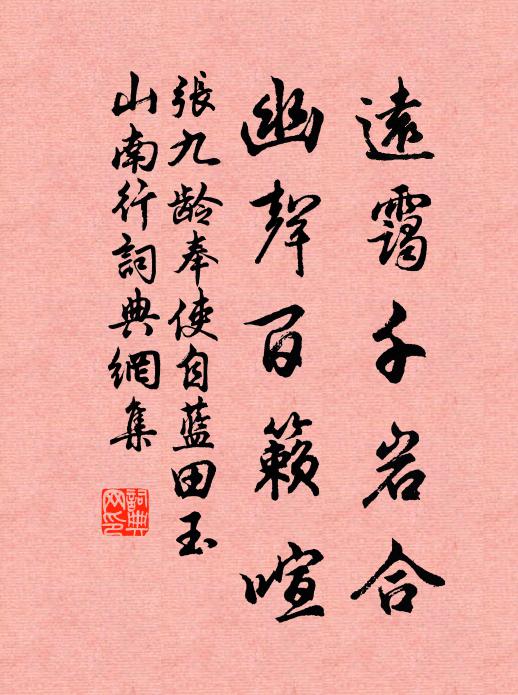 遠靄千岩合
幽聲百籟喧
張九龄奉使自藍田玉
山南行詞典網集
詞典
网印